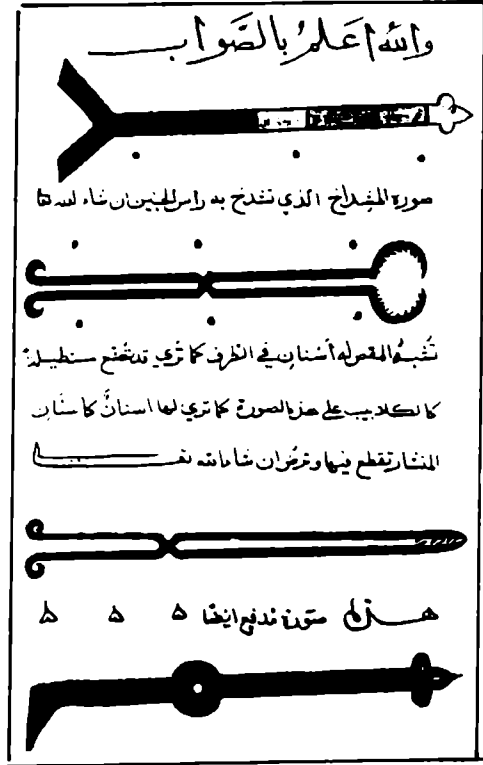 والله اعلم بالصواب
صورة المشداخ الذي تشدخ به راس الجنين ان شاء الله تعا
تشبه المقص له أسنان في الطرف كما تري قد تصنع مستطيلة
كالكلاليب على هذه الصورة كما تري لها اسنان كاسنان
المنشار تقطع فيها وترض ان شا الله تعـ
هذه صورة مدفع ايضا ه ه ه